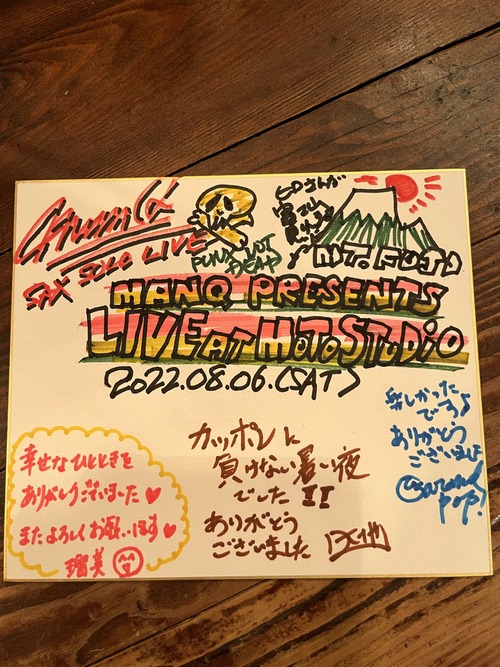 SAX SOLO LIVE
PUNX NOT
DEAD
MT. FUJI
MANQ PRESENTS
LIVE AT MOTO STUDIO
2022.08.06.(SAT)
楽しかった
です♪
ありがとう
ございました
カッポレに
負けない暑い夜
でした!!
ありがとう
ございました
幸せなひとときを
ありがとうございました♥
またよろしくお願いします♥
瑠美